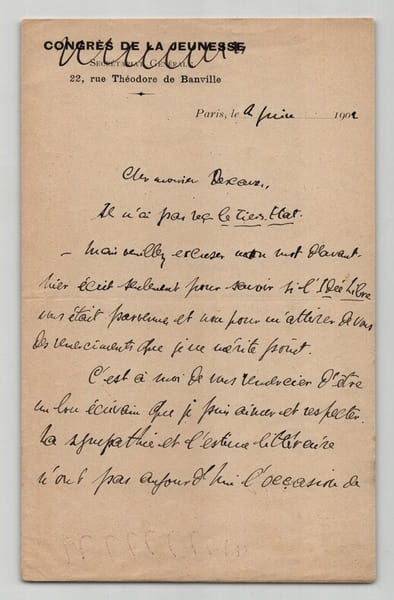 CONGRÈS DE LA JEUNESSE
SECRÉTARIAT GÉNÉRAL
22, rue Théodore de Banville
Paris, le 2 juin 1902
Cher monsieur Descaves,
Je n'ai pas reçu le Tiers Etat.
— Mais veuillez excuser mon mot d'avant-
hier écrit seulement pour savoir si l'Idée Libre
vous était parvenue et non pour m'attirer de vous
des remerciements que je ne mérite point.
C'est à moi de vous remercier d'être
un bon écrivain que je puis aimer et respecter.
La sympathie et l'estime littéraire
n'ont pas aujourd'hui l'occasion de